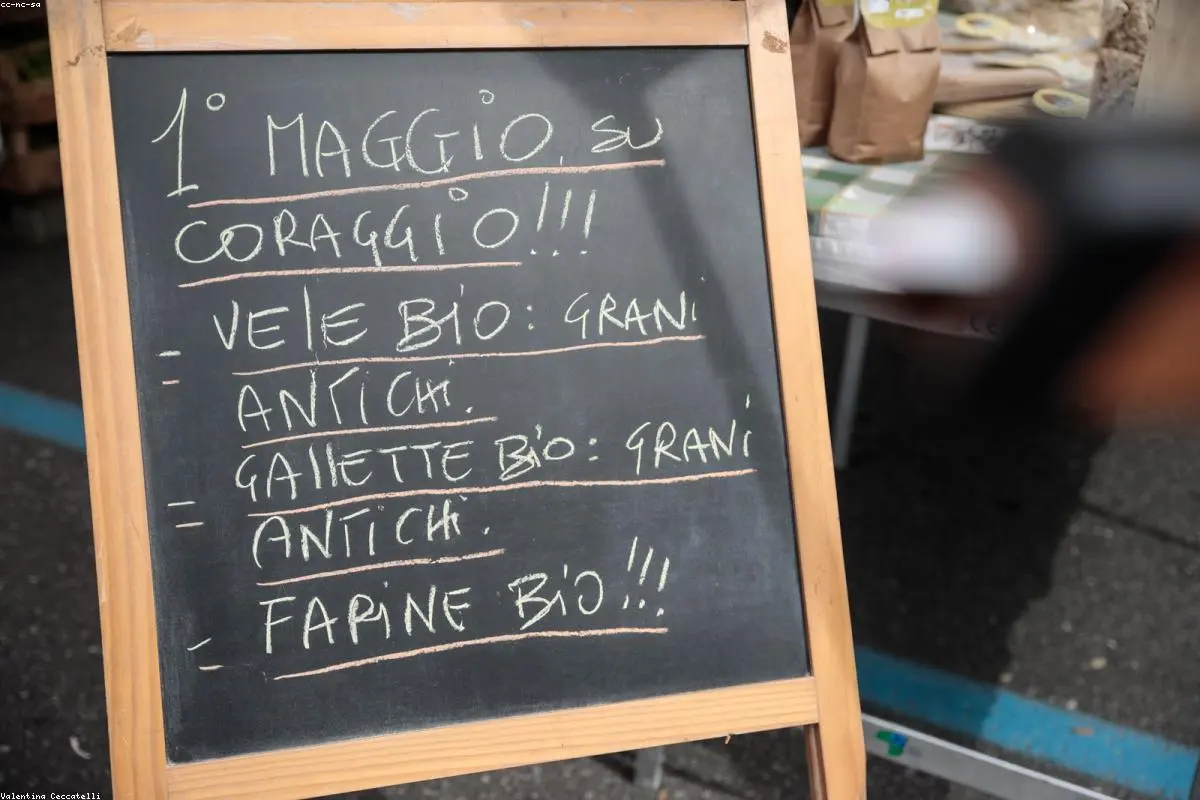 cc-nc-sa
1° MAGGIO. SU
CORAGGIO!!!
- VElE BIO: GRANI
ANTICHI.
- GAllETTE BIO: GRANI
ANTICHI.
- FARINE BIO!!!
Valentina Ceccatelli